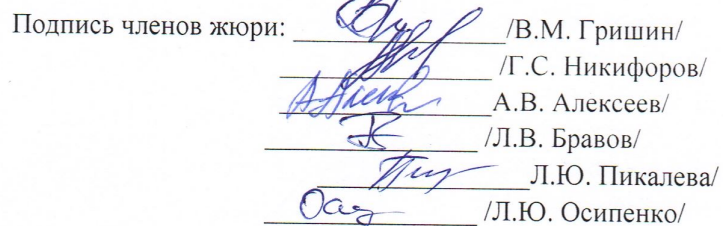 Подпись членов жюри: ________________/В.М. Гришин/
________________/Г.С. Никифоров/
________________А.В. Алексеев/
________________/Л.В. Бравов/
________________Л.Ю. Пикалева/
________________/Л.Ю. Осипенко/